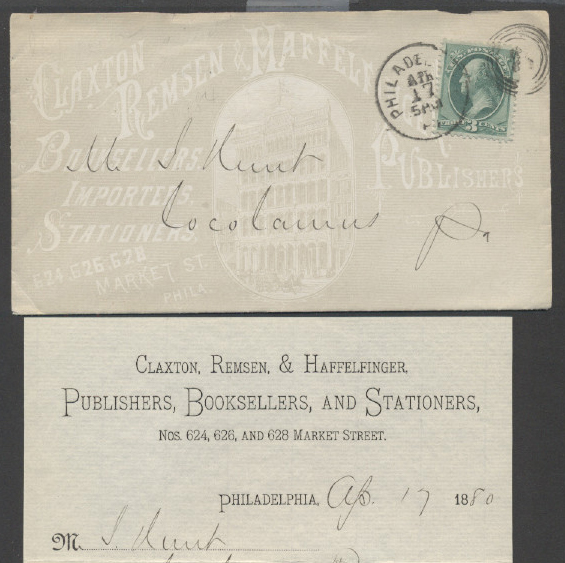 CLAXTON
REMSEN & HAFFELF
BOOKSELLERS
IMPORTERS,
STATIONERS,
PUBLISHERS
624·626·628
MARKET ST.
PHILA.
PHILADE
APR
17
5PM
U.S. POSTAGE
THREE 3 CENTS
Mr. S Hunt
Cocolamus
Pa
CLAXTON, REMSEN, & HAFFELFINGER,
PUBLISHERS, BOOKSELLERS, AND STATIONERS,
NOS. 624, 626, AND 628 MARKET STREET.
PHILADELPHIA, Ap. 17 1880
M S Hunt